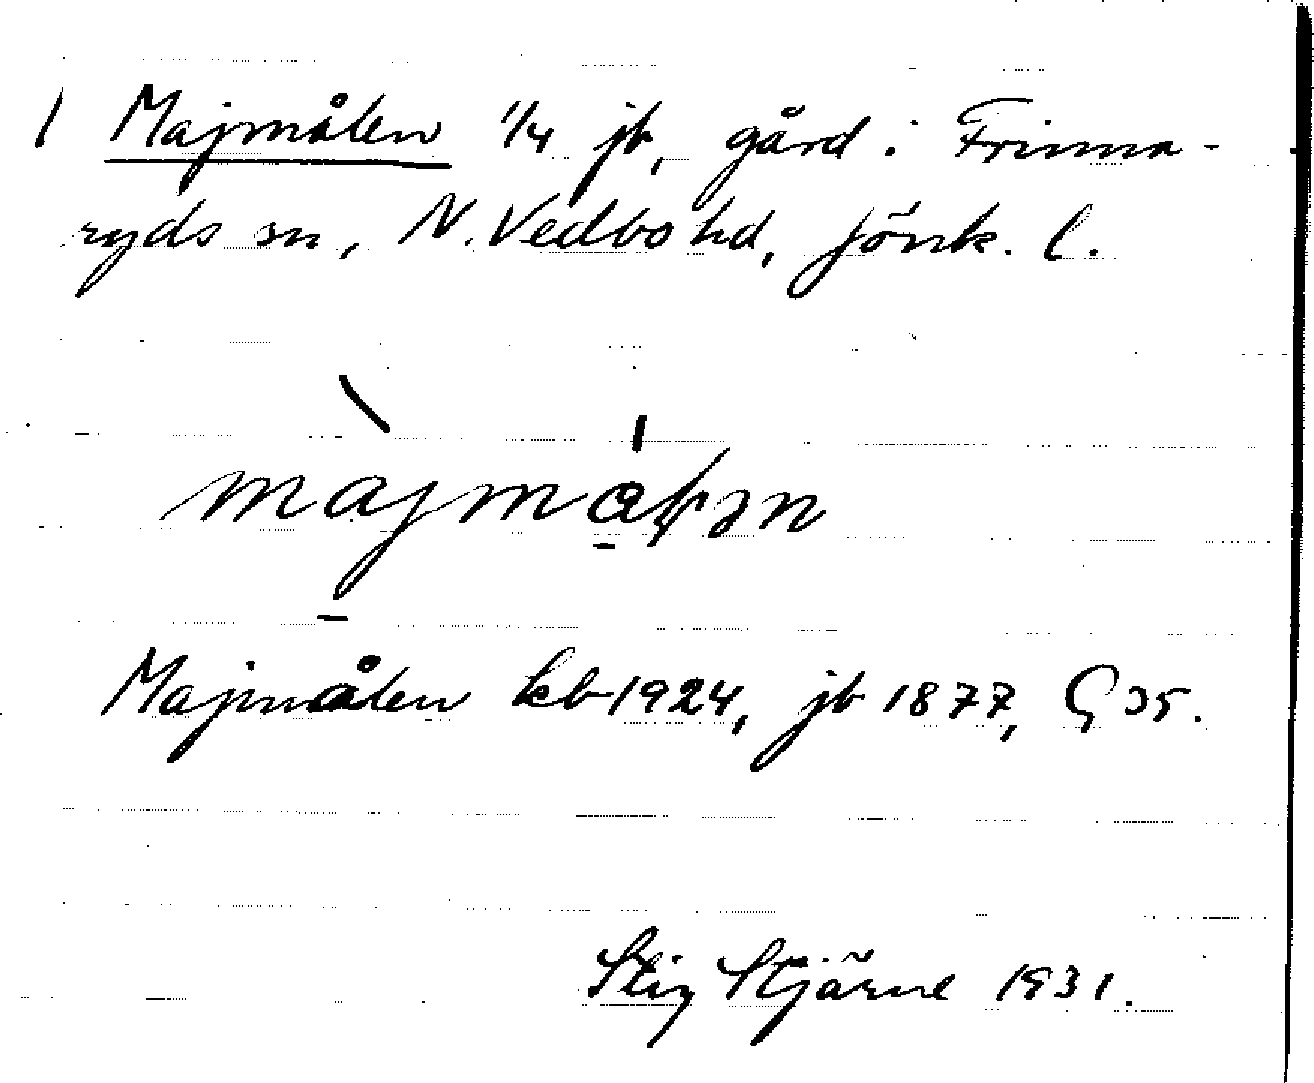 1 Majmålen 1/4 jb, gård i Frinna-
ryds sn, N. Vedbo hd, Jönk. l.
màjmåłən
Majmålen kb 1924, jb 1877, G 35.
Stig Stjärne 1931.